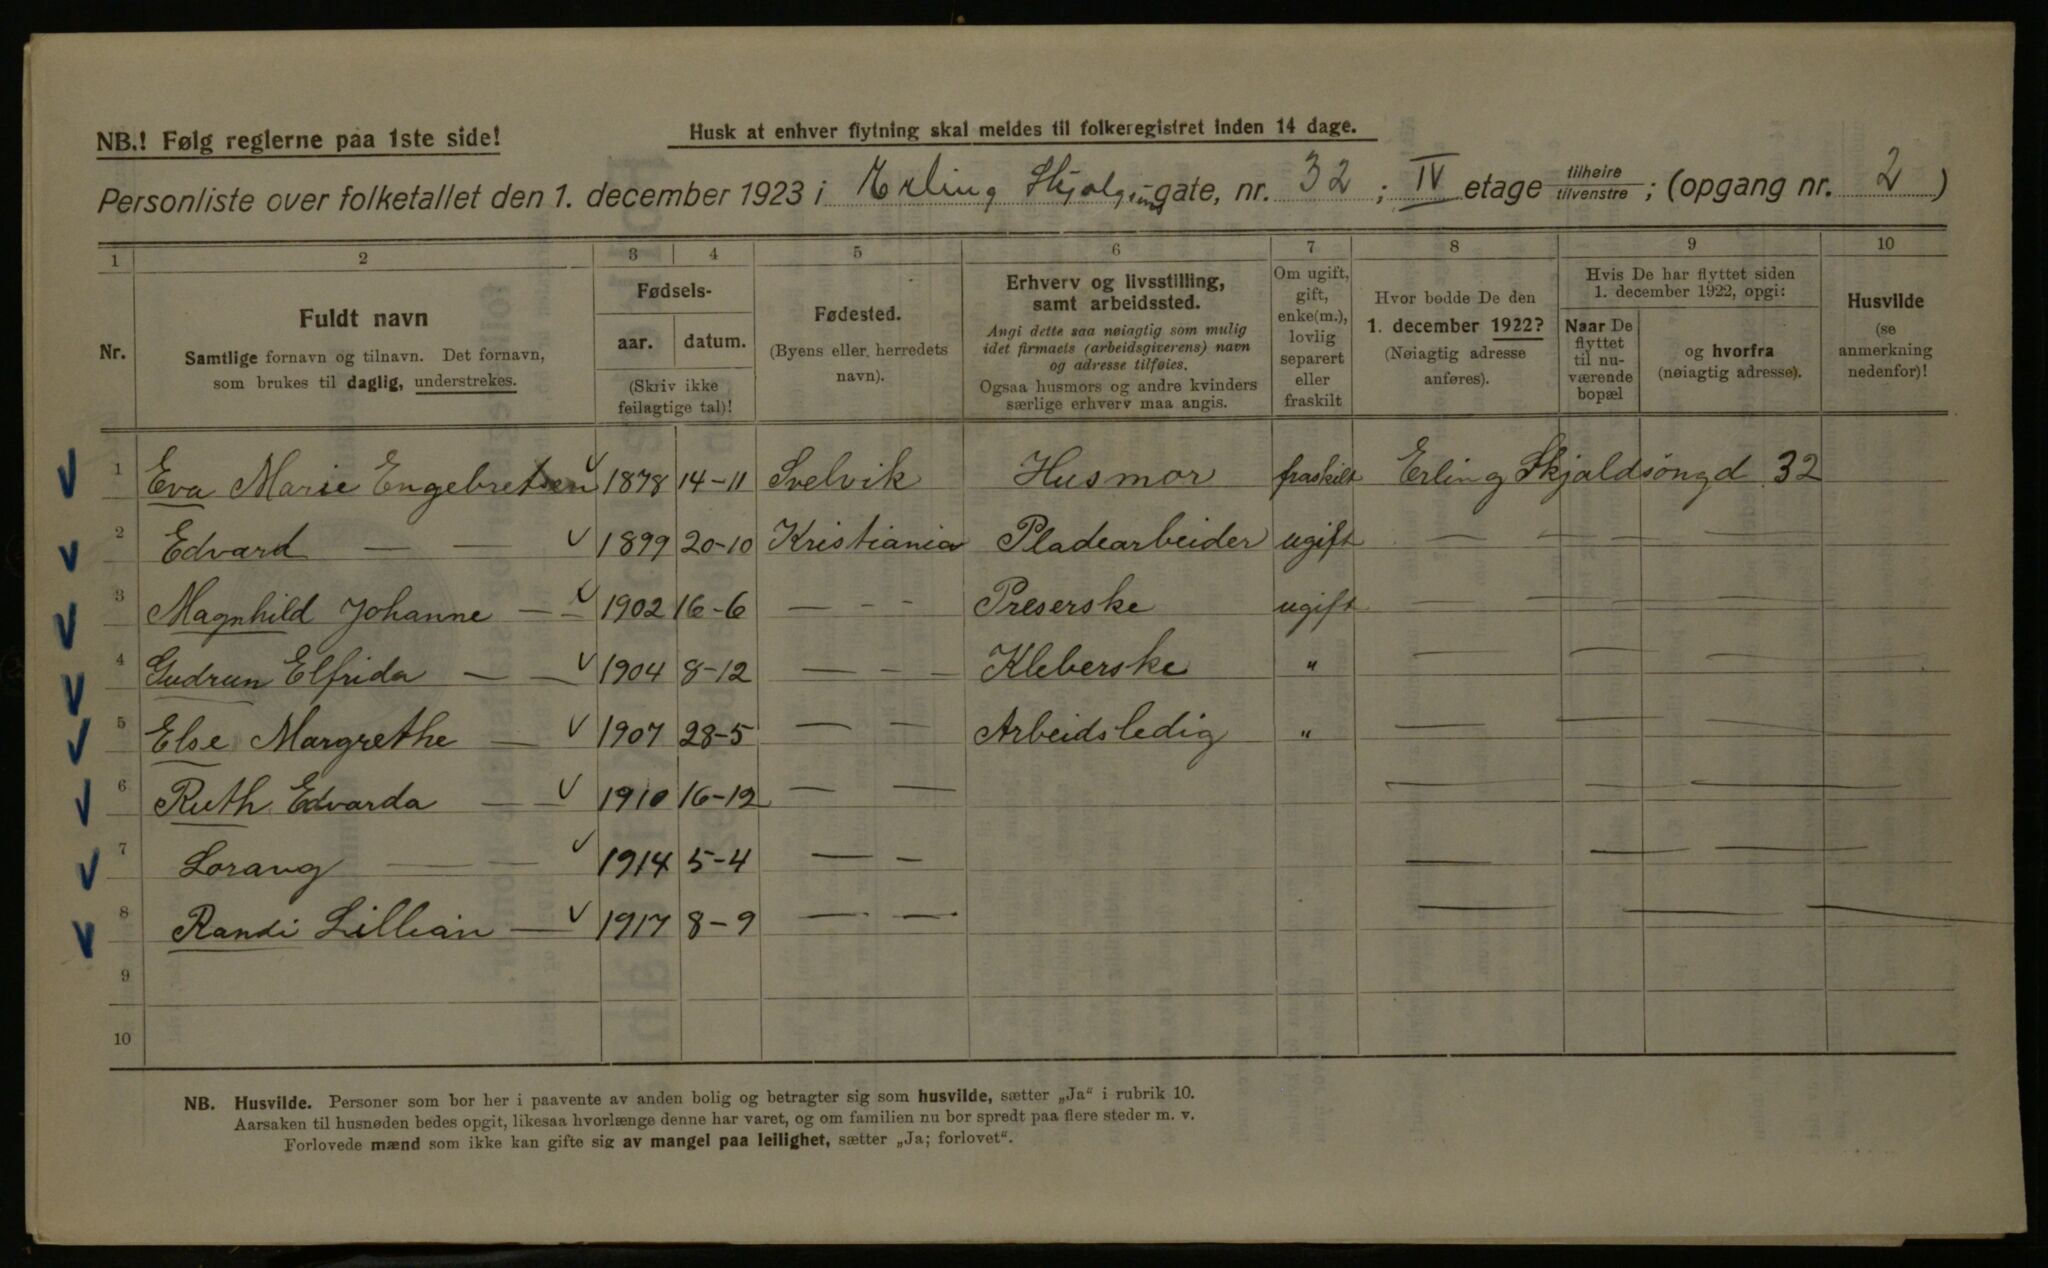 NB.! Følg reglerne paa 1ste side!
Husk at enhver flytning skal meldes til folkeregistret inden 14 dage.
Personliste over folketallet den 1. december 1923 i Erling Skjalgsøns gate, nr. 32; IV etage tilhøire/tilvenstre; (opgang nr. 2)
1 2 3 4 5 6 7 8 9 10
Nr.
Fuldt navn
Samtlige fornavn og tilnavn. Det fornavn,
som brukes til daglig, understrekes.
Fødsels-
aar. datum.
(Skriv ikke
feilagtige tal)!
Fødested.
(Byens eller herredets
navn).
Erhverv og livsstilling,
samt arbeidssted.
Angi dette saa nøiagtig som mulig
idet firmaets (arbeidsgiverens) navn
og adresse tilføies.
Ogsaa husmors og andre kvinders
særlige erhverv maa angis.
Om ugift,
gift,
enke(m.),
lovlig
separert
eller
fraskilt
Hvor bodde De den
1. december 1922?
(Nøiagtig adresse
anføres).
Hvis De har flyttet siden
1. december 1922, opgi:
Naar De
flyttet
til nu-
værende
bopæl
og hvorfra
(nøiagtig adresse).
Husvilde
(se
anmerkning
nedenfor)!
1 Eva Marie Engebretsen 1878 14-11 Svelvik Husmor fraskilt Erling Skjaldsöngd 32
2 Edvard — — 1899 20-10 Kristiania Pladearbeider ugift — — — —
3 Magnhild Johanne — — 1902 16-6 — - - Preserske ugift — — — —
4 Gudrun Elfrida — — 1904 8-12 — — Kleberske " — — —
5 Else Margrethe — 1907 28-5 — — Arbeidsledig " — — —
6 Ruth Edvarda — — 1910 16-12 — — — — —
7 Lorang — — 1914 5-4 — — — — —
8 Randi Lillian — 1917 8-9 — — — — —
9
10
NB. Husvilde. Personer som bor her i paavente av anden bolig og betragter sig som husvilde, sætter „Ja" i rubrik 10.
Aarsaken til husnøden bedes opgit, likesaa hvorlænge denne har varet, og om familien nu bor spredt paa flere steder m. v.
Forlovede mænd som ikke kan gifte sig av mangel paa leilighet, sætter „Ja; forlovet".